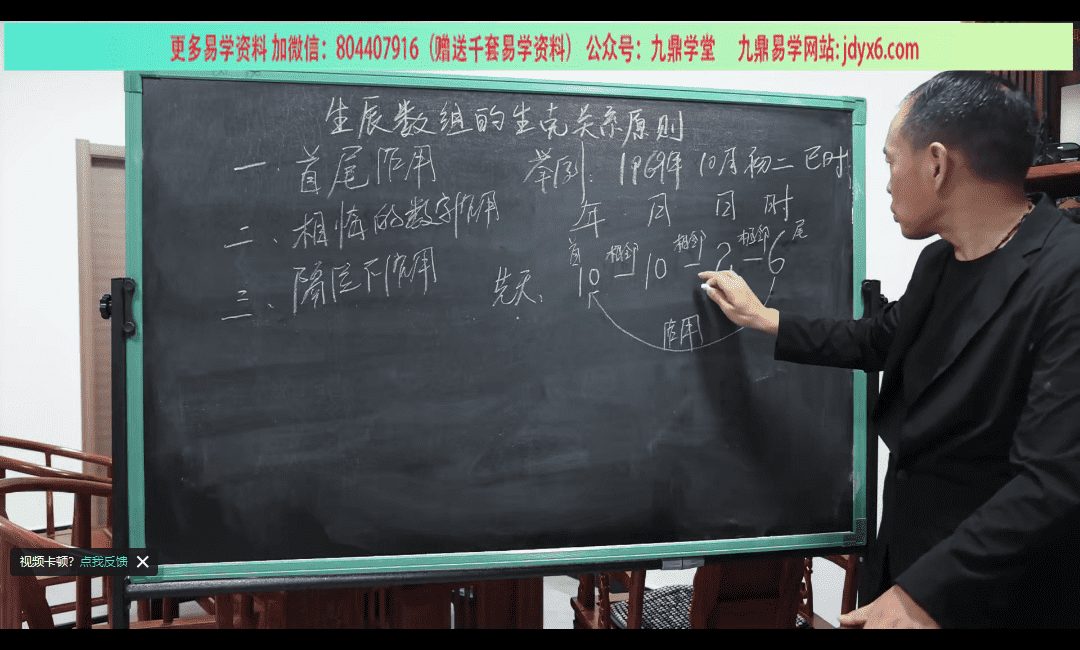 更多易学资料 加微信：804407916（赠送千套易学资料） 公众号：九鼎学堂 九鼎易学网站: jdyx6.com
生辰数组的生克关系原则
一、首尾作用
举例：1969年 10月初二 巳时
二、相临的数字作用
年 月 日 时
三、隔位不作用
先天：
首 相邻 相邻 相邻 尾
10 — 10 — 2 — 6
作用
视频卡顿？点我反馈 ✕